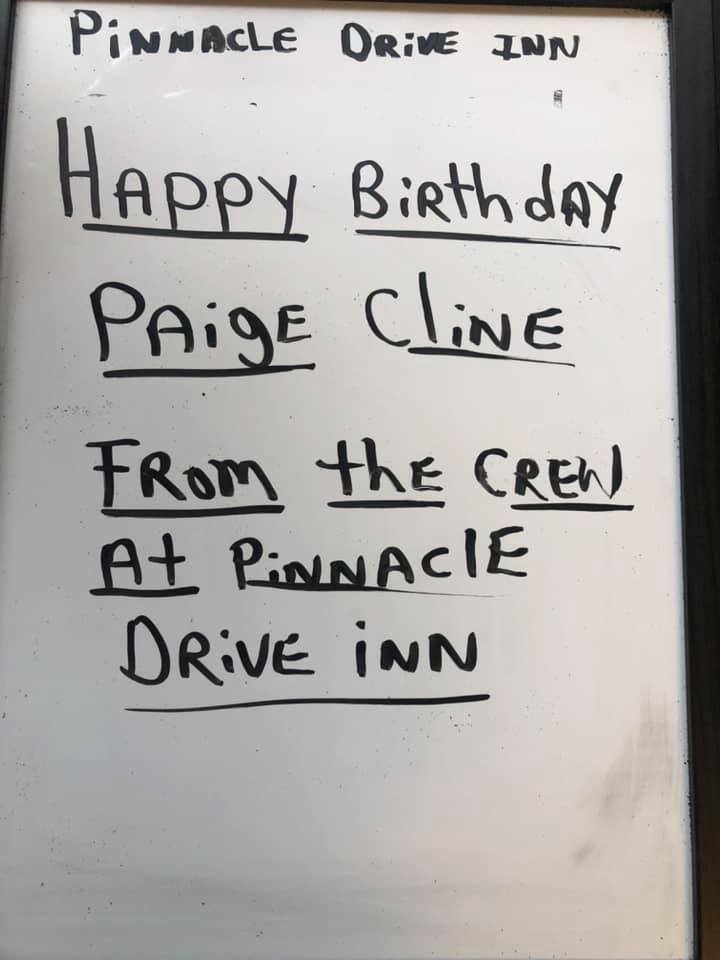 PiNNACLE DRiVE INN
HAPPY BiRthdAY
PAigE CliNE
FRom thE CREW
At PiNNAClE
DRiVE iNN